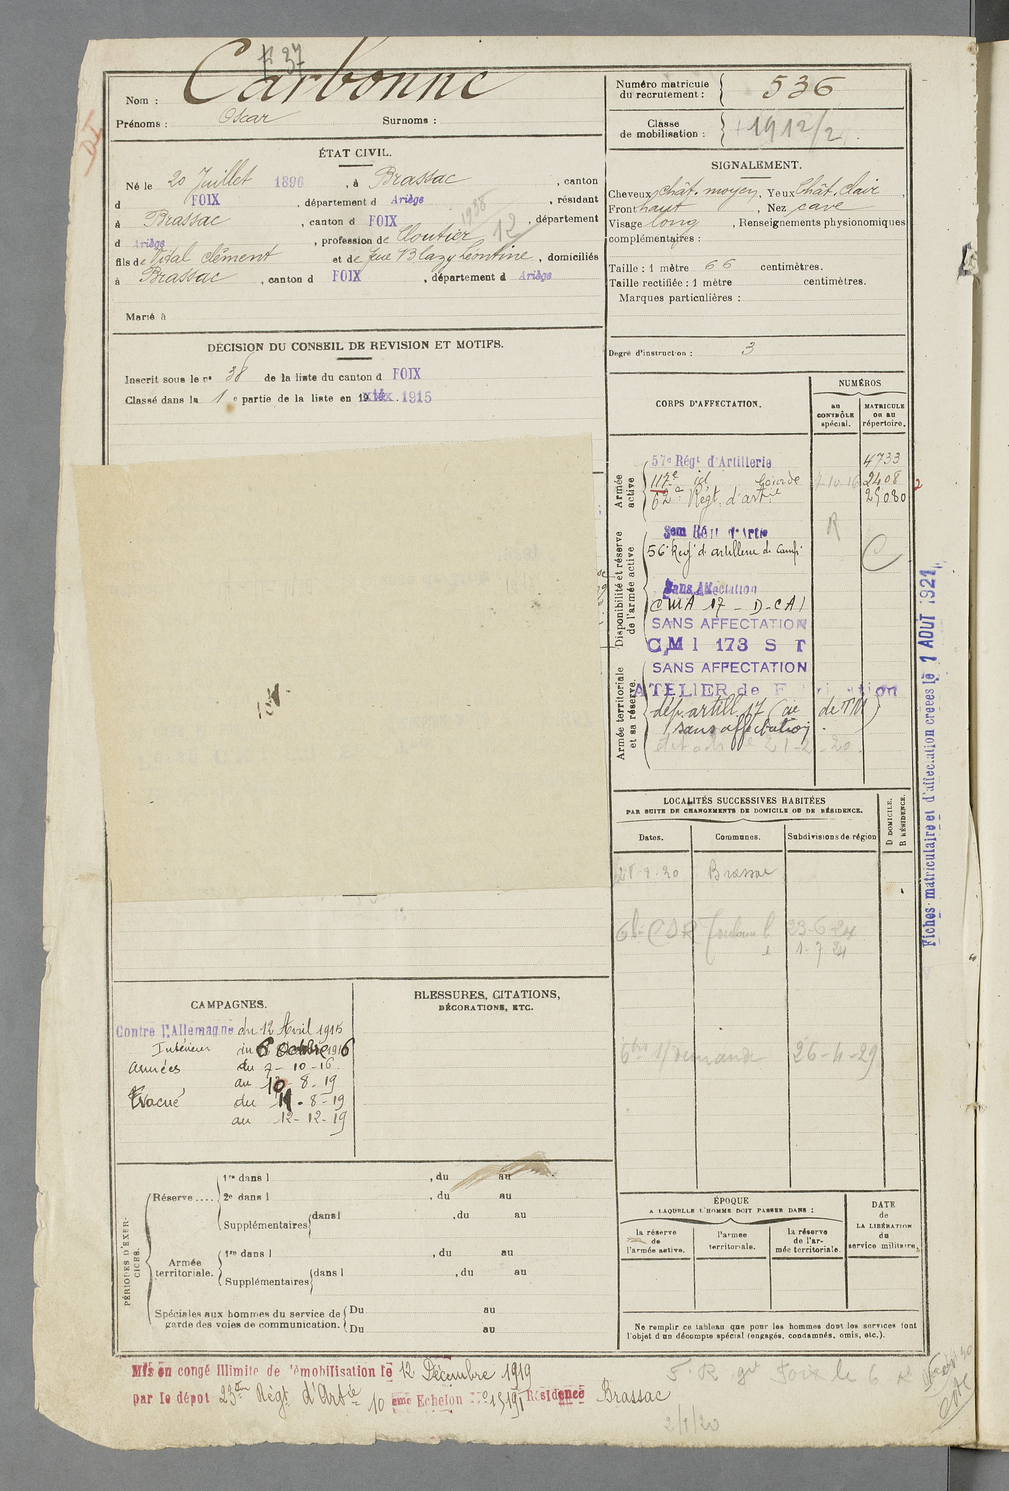 F 37
Nom : Carbonne
Prénoms : Oscar Surnoms :
ÉTAT CIVIL.
Né le 20 Juillet 1896, à Brassac, canton
d FOIX, département d Ariège, résidant
à Brassac, canton d FOIX, département
d Ariège, profession de Cloutier 1938 12
fils de Vidal Clément et de feue Blazy Léontine, domiciliés
à Brassac, canton d FOIX, département d Ariège
Marié à
DÉCISION DU CONSEIL DE REVISION ET MOTIFS.
Inscrit sous le n° 38 de la liste du canton d FOIX
Classé dans la 1 e partie de la liste en 19 1915
Numéro matricule
du recrutement : 536
Classe
de mobilisation : 1912/2
SIGNALEMENT.
Cheveux Chât. moyen, Yeux Chât. Clair
Front haut, Nez cave
Visage long, Renseignements physionomiques
complémentaires :
Taille : 1 mètre 66 centimètres.
Taille rectifiée : 1 mètre centimètres.
Marques particulières :
Degré d'instruction : 3
CORPS D'AFFECTATION.
NUMÉROS
au
CONTRÔLE
spécial.
MATRICULE
OU AU
répertoire.
Armée
active
57e Régt d'Artillerie 4733
117e id lourde 7-10-16 2408
62e Régt d'artie 25080
2
R
Disponibilité et réserve
de l'armée active
56e Regt d'artillerie de Camp
C
Sans Affectation
CMA 17 - D-CA1
SANS AFFECTATION
C M I 173 S T
SANS AFFECTATION
Armée territoriale
et sa réserve.
ATELIER de
dép. artill. 17
sans affectation
21-2-20.
Fiches matriculaire et d'affectation créées le 1 AOUT 1921
LOCALITÉS SUCCESSIVES HABITÉES
PAR SUITE DE CHANGEMENTS DE DOMICILE OU DE RÉSIDENCE.
Dates. Communes. Subdivisions de région
D DOMICILE.
R RÉSIDENCE.
20 Brassac
CSR 23-6-24
1-7 24
demande 26-4-29
CAMPAGNES.
Contre l'Allemagne du 12 Avril 1915
Intérieur au 6 Octobre 1916
Armées du 7-10-16
au 10-8-19
Evacué du 11-8-19
au 12-12-19
BLESSURES, CITATIONS,
DÉCORATIONS, ETC.
PÉRIODES D'EXER-
CICES.
Réserve .... 1re dans l , du au
2e dans l , du au
Supplémentaires dans l , du au
Armée
territoriale.
1re dans l , du au
Supplémentaires dans l , du au
Spéciales aux hommes du service de
garde des voies de communication.
Du au
Du au
ÉPOQUE
A LAQUELLE L'HOMME DOIT PASSER DANS :
la réserve
de
l'armée active.
l'armée
territoriale.
la réserve
de l'ar-
mée territoriale.
DATE
de
LA LIBÉRATION
du
service militaire.
Ne remplir ce tableau que pour les hommes dont les services font
l'objet d'un décompte spécial (engagés, condamnés, omis, etc.).
Mis en congé illimité de démobilisation le 12 Décembre 1919
par le dépôt 23em Régt d'Artie 10 eme Echelon No 15191 Résidence Brassac
Foix le 6
2/1/20